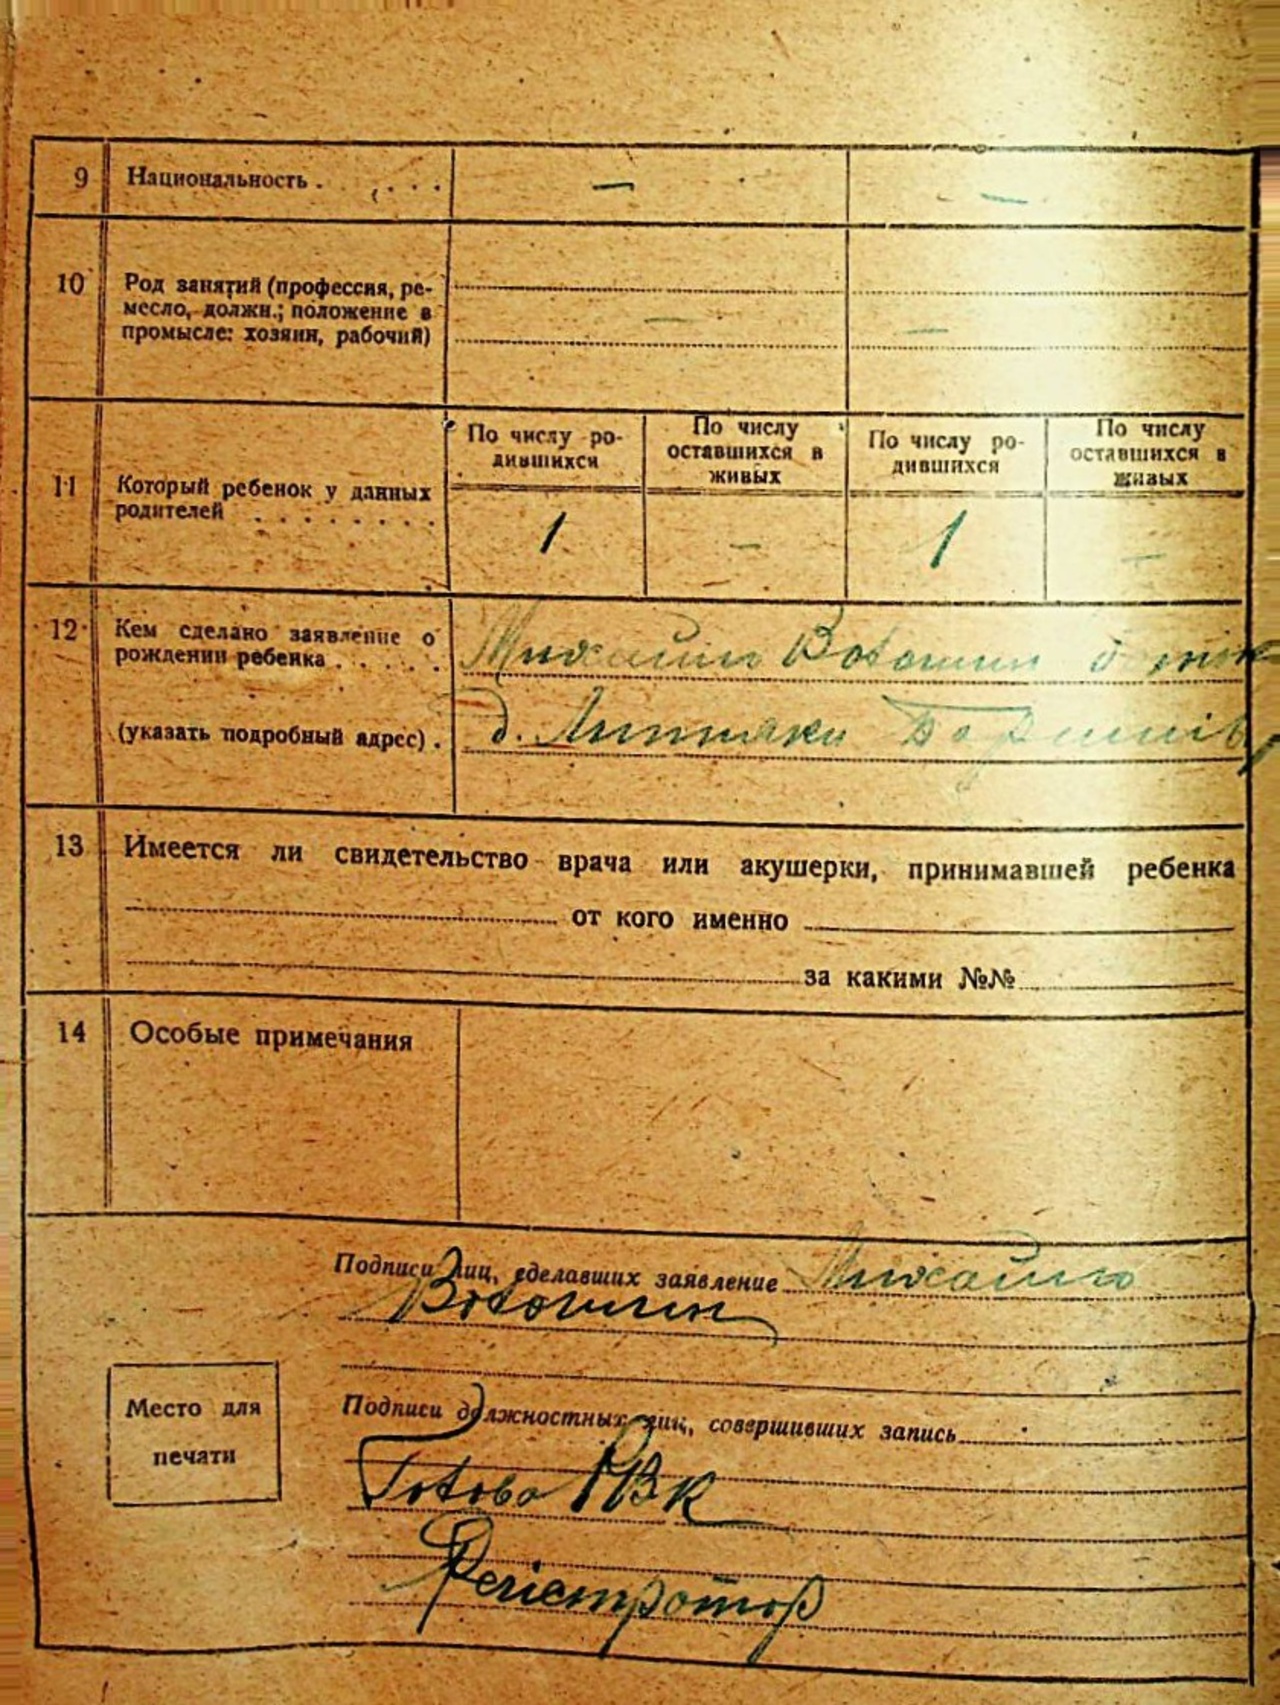 9 Национальность . . . . . — —
10 Род занятий (профессия, ре-
месло, должн.; положение в
промысле: хозяин, рабочий) — —
По числу ро-
дившихся
По числу
оставшихся в
живых
По числу ро-
дившихся
По числу
оставшихся в
живых
11 Который ребенок у данных
родителей . . . . . . . .
1 — 1 —
12 Кем сделано заявление о
рождении ребенка . . . . . .
Михаил Волошин
(указать подробный адрес) .
д. Липняки
13 Имеется ли свидетельство врача или акушерки, принимавшей ребенка
от кого именно
за какими №№
14 Особые примечания
Подписи лиц, сделавших заявление Михаил
Волошин
Место для
печати
Подписи должностных лиц, совершивших запись
Голова РВК
Регістратор